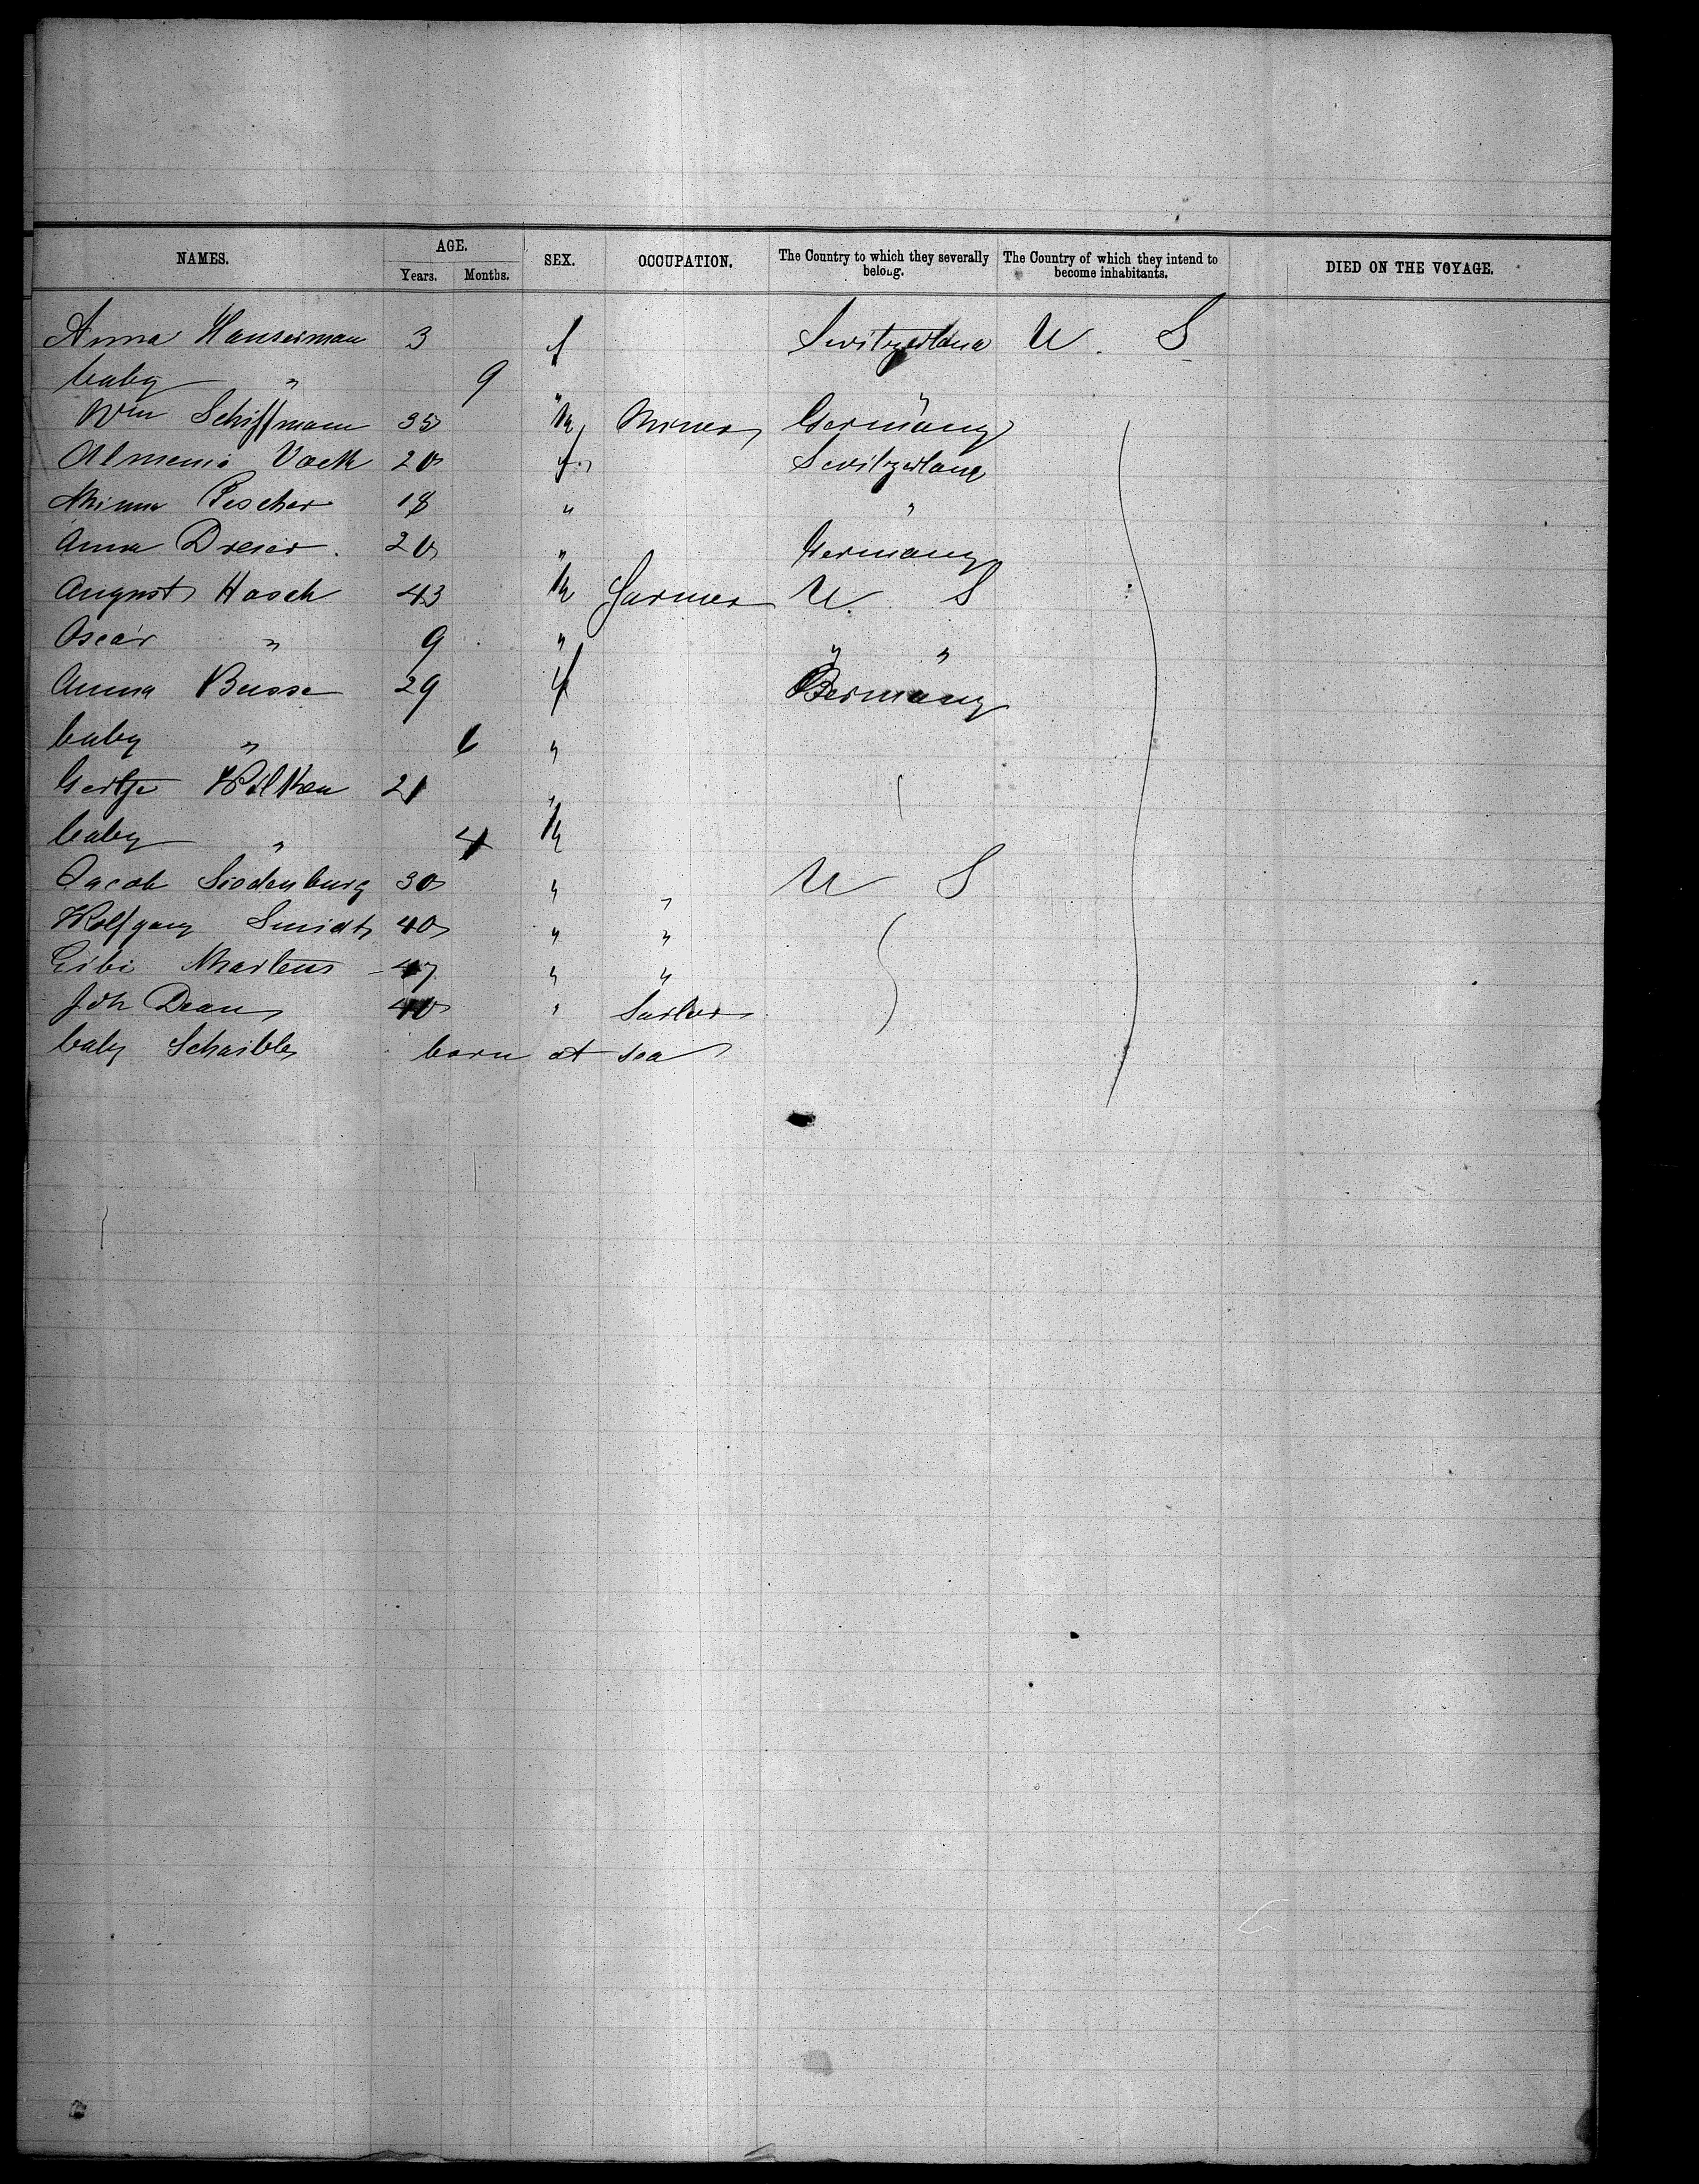 NAMES. AGE. SEX. OCCUPATION. The Country to which they severally belong. The Country of which they intend to become inhabitants. DIED ON THE VOYAGE.
Years. Months.
Anna Hauserman 3 f Switzerland U. S
baby " 9 " "
Wm Schiffmann 35 M Miner Germany
Almenia Vock 20 f. Switzerland
Minna Pescher 18 " "
Anna Dreier. 20 " Germany
August Hasch 43 M Farmer U. S
Oscar " 9 " " "
Anna Busse 29 f Germany
baby " 6 "
Gertje Wilken 21 "
baby " 4 M
Jacob Siedenburg 30 " " U S
Wolfgang Smidt 40 " "
Eibi Martens 47 " "
Joh Dean 40 " Sailor
baby Schaible born at sea